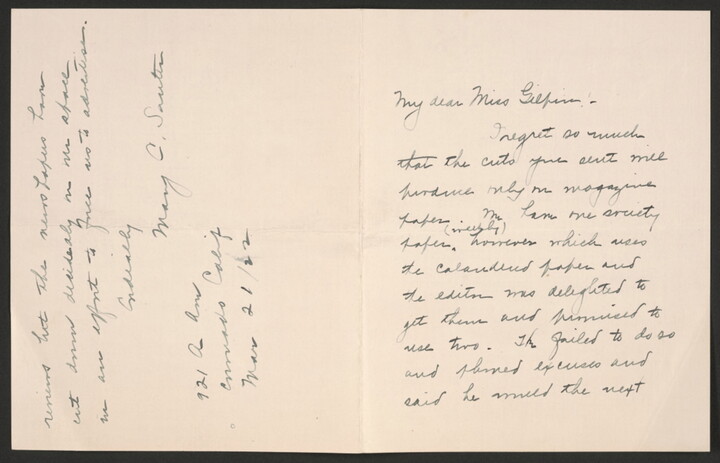 My dear Miss Gilpin:-
I regret so much
that the cuts you sent will
produce only on magazine
paper. We have one society
(weekly)
paper, however which uses
the calendered paper and
the editor was delighted to
get them and promised to
use two. He failed to do so
and phoned excuses and
said he would the next
reviews but the newspapers have
cut down decidedly on our space
in an effort to force us to advertise.
Cordially
Mary C.
921 A Ave
Coronado Calif
Mar 21/22